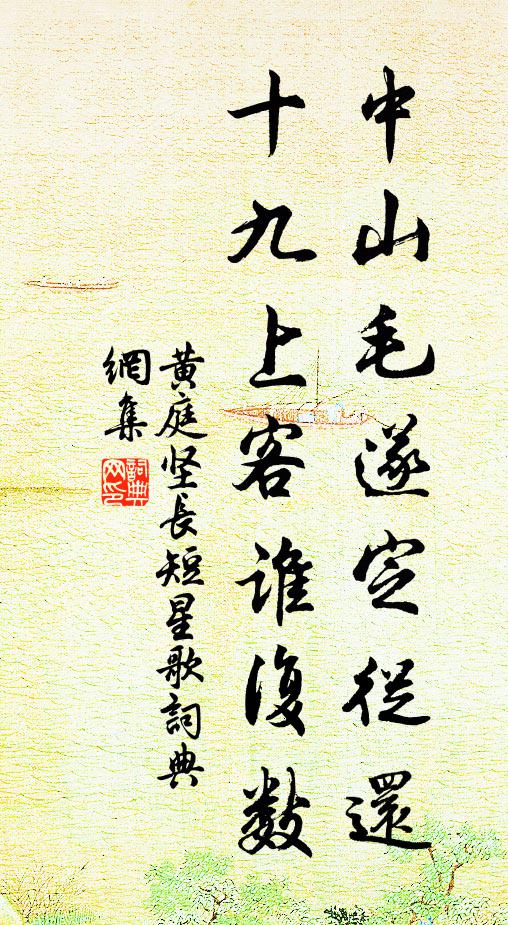 中山毛遂定從還
十九上客誰復數
黄庭坚長短星歌詞典
網集
詞典
网印